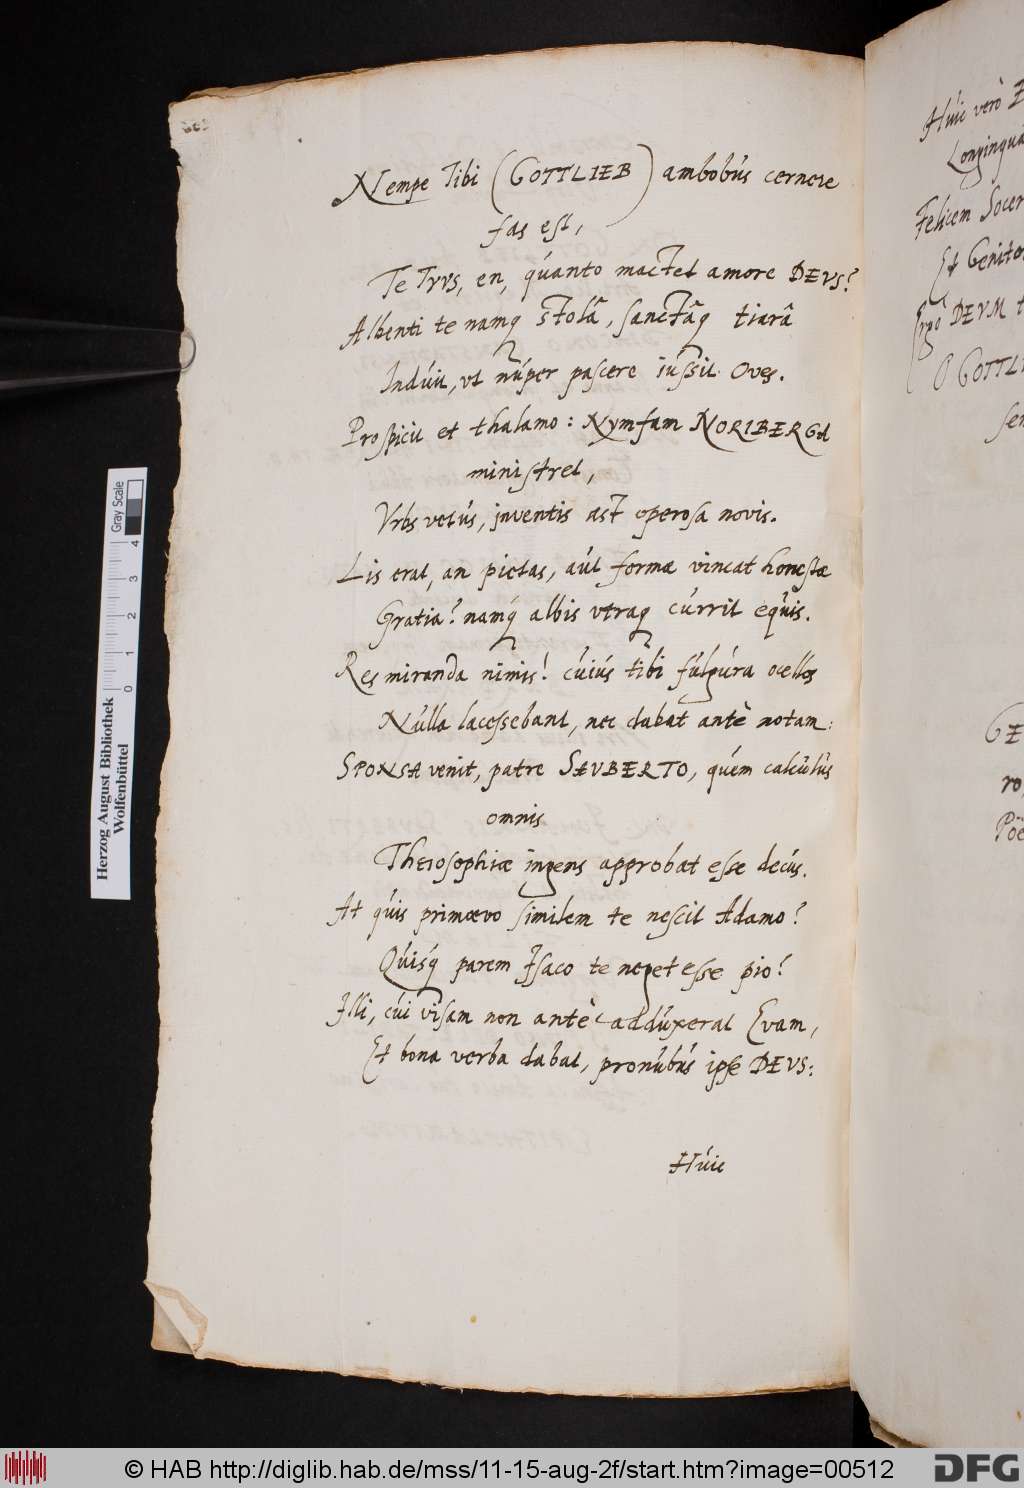 Nempe Tibi (GOTTLIEB) ambobus cernere
fas est,
Te TVVS, en, quanto mactet amore DEVS?
Albenti te namq stolâ, sanctâq tiarâ
Induit, vt nuper pascere iussit Oves.
Prospicit et thalamo: Nymfam NORIBERGA
ministret,
Vrbs vetus, inventis ast operosa novis.
Lis erat, an pietas, aut formæ vincat honestæ
Gratia? namq albis vtraq currit equis.
Res miranda nimis! cuius tibi fulgura ocellos
Nulla lacessebant, nec dabat antè notam:
SPONSA venit, patre SAVBERTO, quem calculus
omnis
Theiosophiæ ingens approbat esse decus.
At quis primævo similem te nescit Adamo?
Quisq parem Isaco te neget esse pio?
Illi, cui visam non antè adduxerat Evam,
Et bona verba dabat, pronubus ipse DEVS:
Huic
Huic verò
Longinqua
Felicem Socer
Et Genito
Ergò DEVM
O GOTTLI
Herzog August Bibliothek
Wolfenbüttel
0 1 2 3 4
Gray Scale
© HAB http://diglib.hab.de/mss/11-15-aug-2f/start.htm?image=00512
DFG